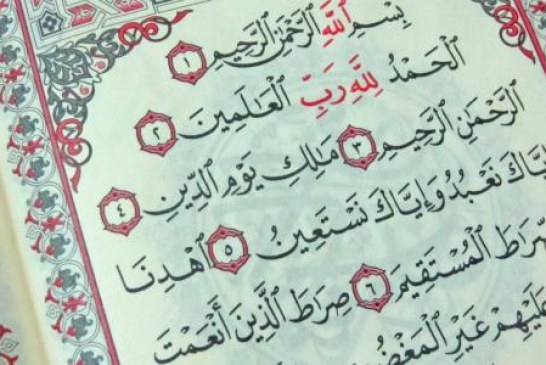 بِسْمِ ٱللَّهِ ٱلرَّحْمَٰنِ ٱلرَّحِيمِ ١
ٱلْحَمْدُ لِلَّهِ رَبِّ ٱلْعَالَمِينَ ٢
ٱلرَّحْمَٰنِ ٱلرَّحِيمِ ٣ مَالِكِ يَوْمِ ٱلدِّينِ ٤
إِيَّاكَ نَعْبُدُ وَإِيَّاكَ نَسْتَعِينُ ٥ ٱهْدِنَا
ٱلْمُسْتَقِيمَ ٦ صِرَاطَ ٱلَّذِينَ أَنْعَمْتَ
غَيْرِ